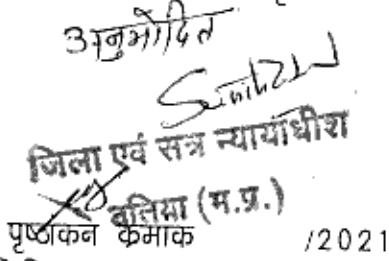 अनुमोदित
जिला एवं सत्र न्यायाधीश
दतिया (म.प्र.)
पृष्ठांकन क्रमांक /2021